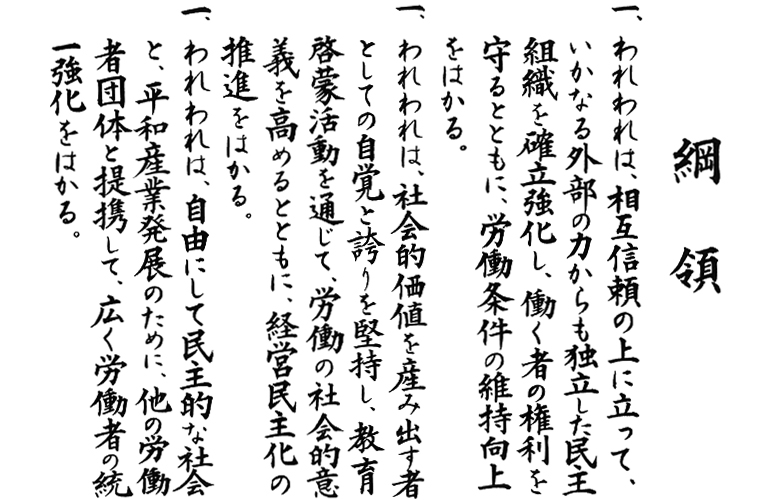 綱領
一、われわれは、相互信頼の上に立って、
いかなる外部の力からも独立した民主
組織を確立強化し、働く者の権利を
守るとともに、労働条件の維持向上
をはかる。
一、われわれは、社会的価値を産み出す者
としての自覚と誇りを堅持し、教育
啓蒙活動を通じて、労働の社会的意
義を高めるとともに、経営民主化の
推進をはかる。
一、われわれは、自由にして民主的な社会
と、平和産業発展のために、他の労働
者団体と提携して、広く労働者の統
一強化をはかる。